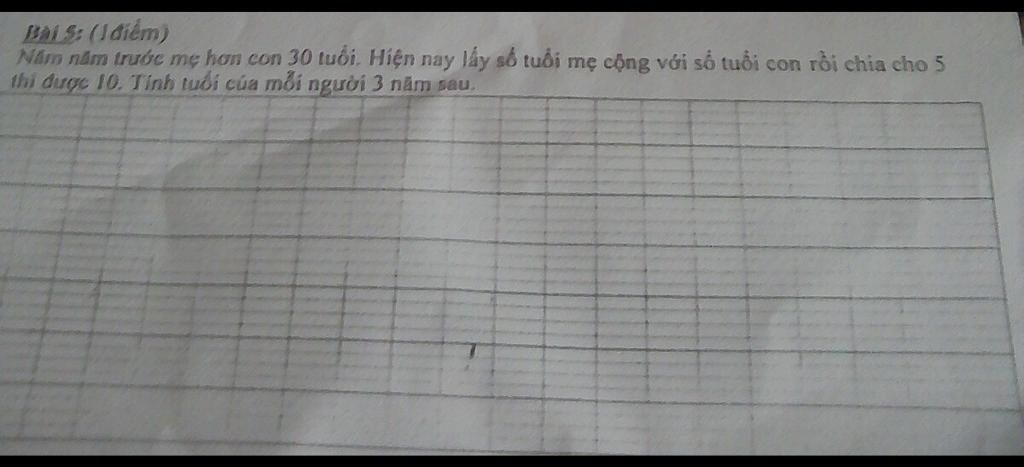 Bài 5: (1điểm)
Năm năm trước mẹ hơn con 30 tuổi. Hiện nay lấy số tuổi mẹ cộng với số tuổi con rồi chia cho 5
thì được 10. Tính tuổi của mỗi người 3 năm sau.